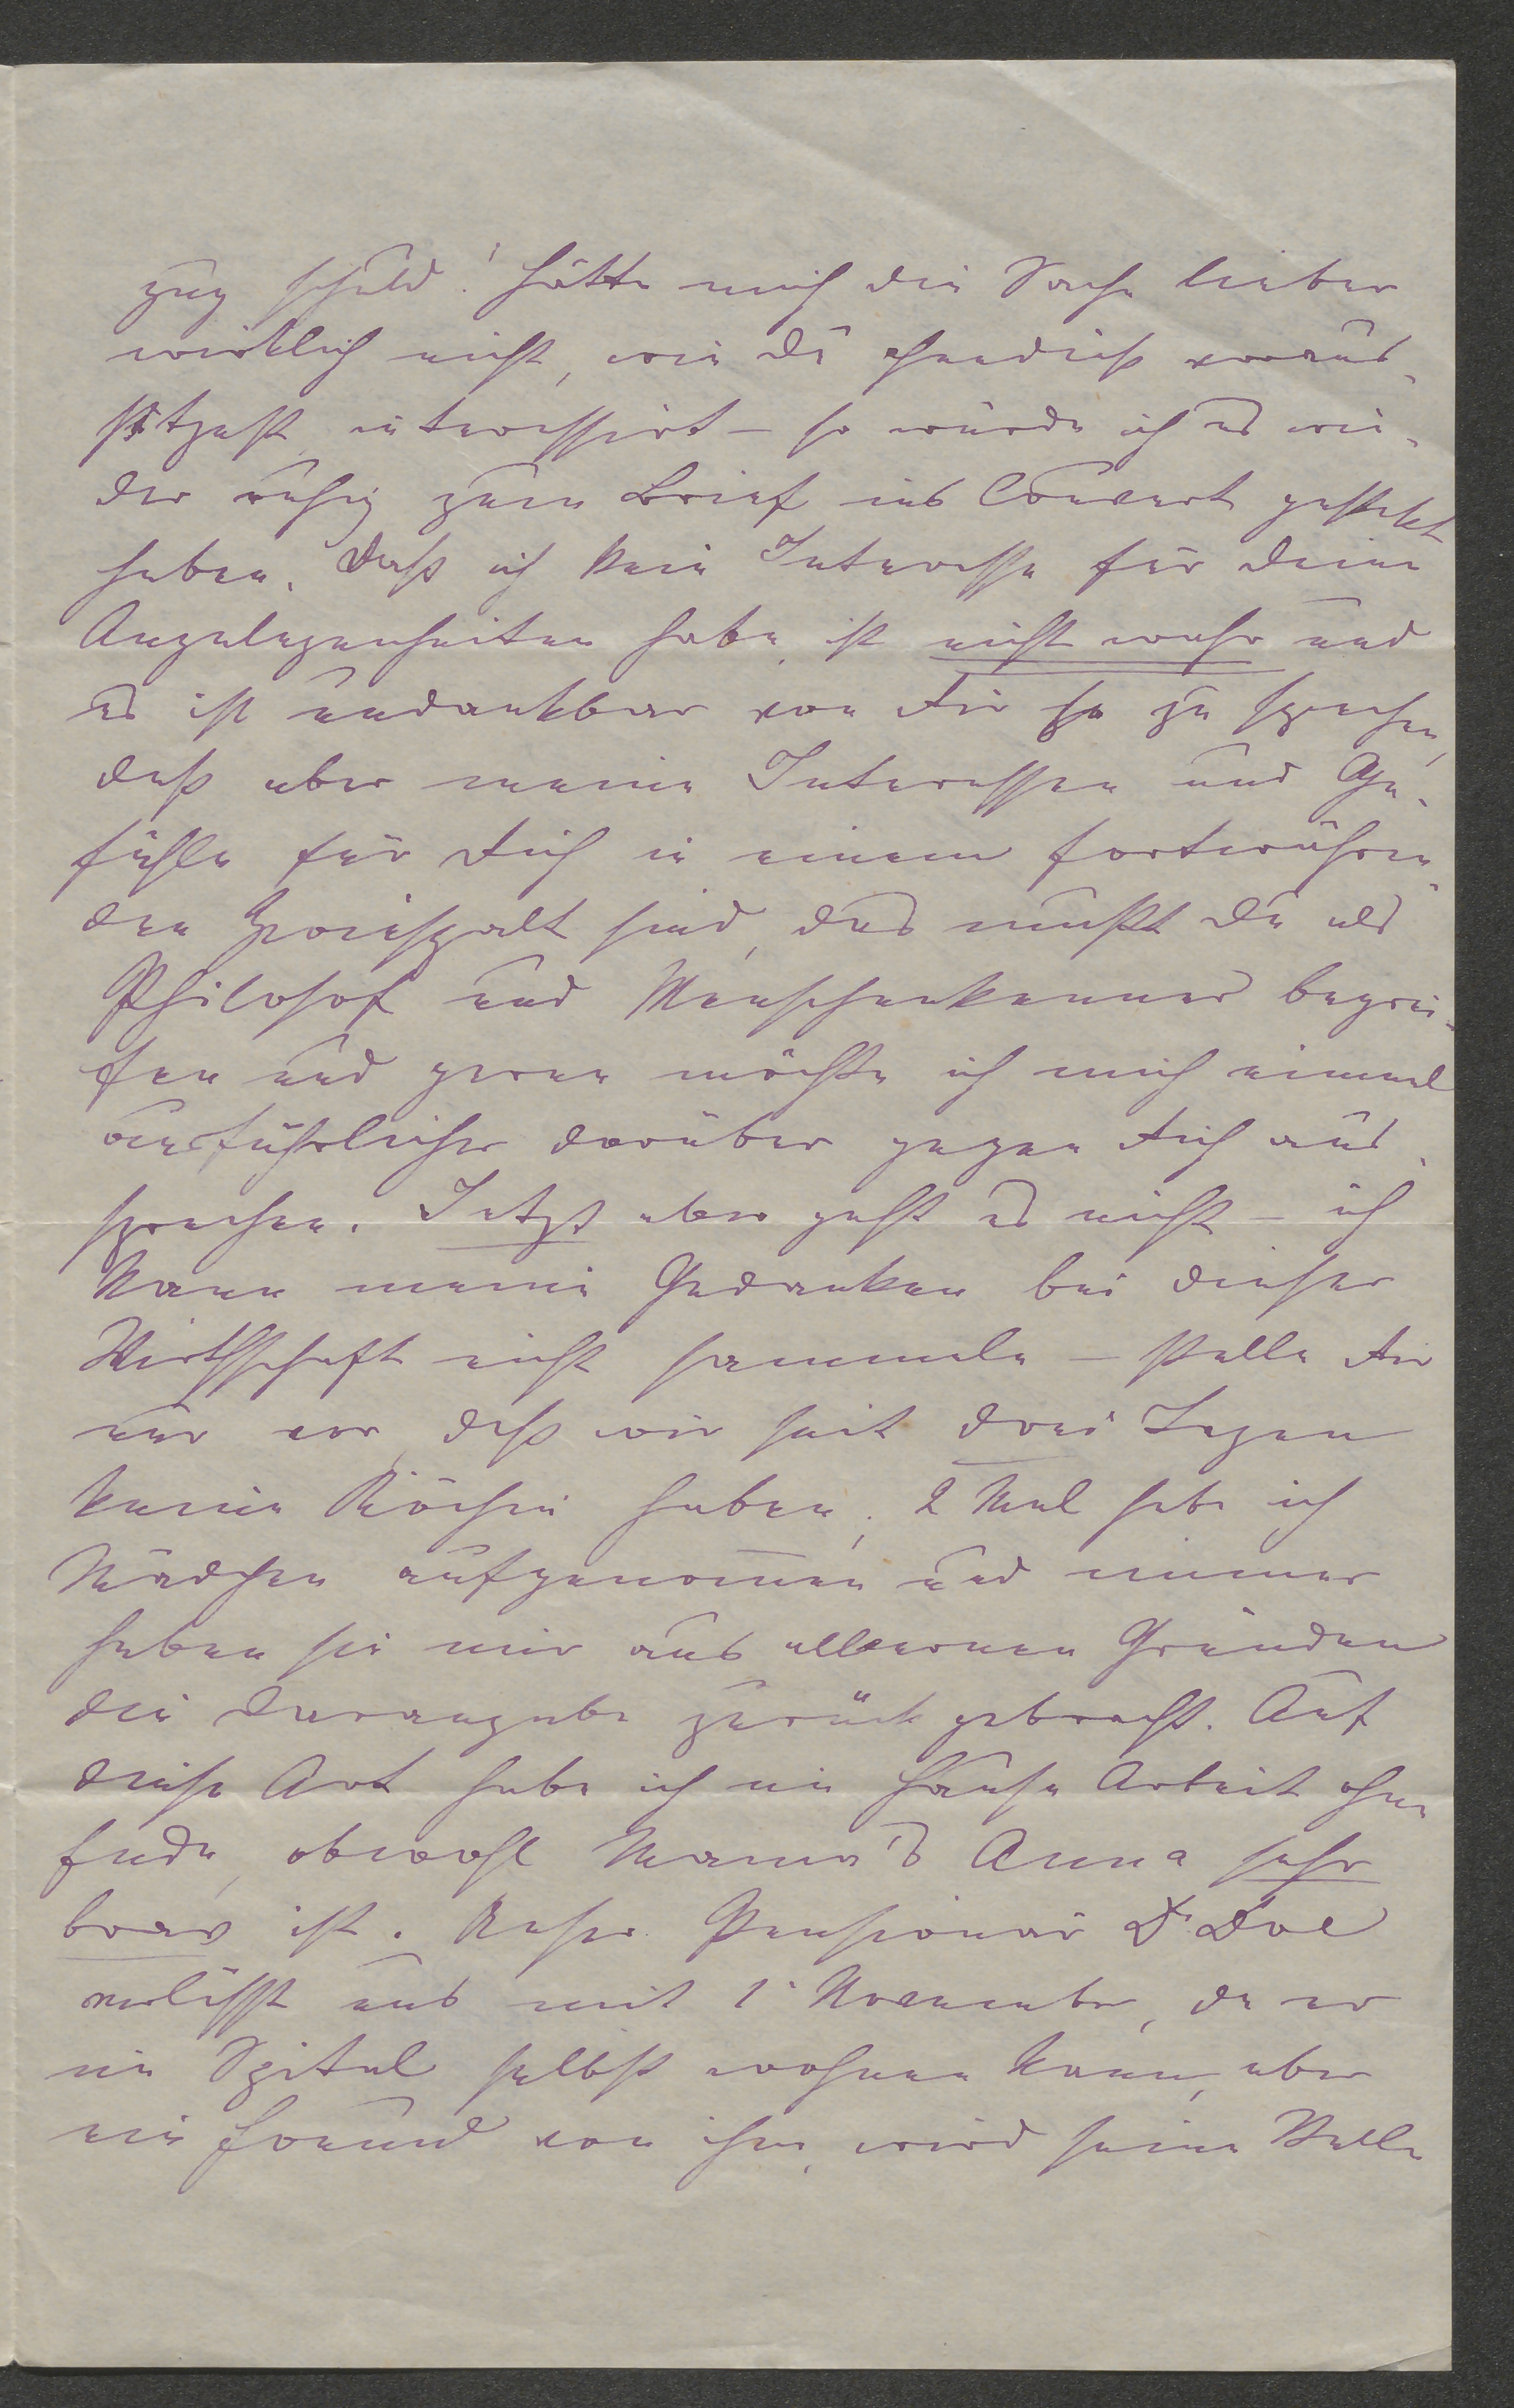 zug schuld! Hätte mich die Sache lieber
wirklich nicht, wie Du ohnedieß voraus-
setzest interessirt – so würde ich es wie-
der ruhig zum Brief ins Couvert gesteckt
haben. Daß ich kein Interesse für Deine
Angelegenheiten habe, ist nicht wahr und
es ist undankbar von Dir so zu sprechen,
daß aber meine Interessen und Ge-
fühle für Dich in einem fortwähren-
den Zwiespalt sind, das mußt Du als
Philosof und Menschenkenner begrei-
fen und gerne möchte ich mich einmal
ausführlicher darüber gegen Dich aus-
sprechen. Jetzt aber geht es nicht – ich
kann meine Gedanken bei dieser
Wirthschaft nicht sammeln – stelle Dir
nur vor, daß wir seit drei Tagen
keine Köchin haben, 2 Mal habe ich
Mädchen aufgenomen und immer
haben sie mir aus albernen Gründen
die Darangabe zurück gebracht. Auf
diese Art habe ich im Hause Arbeit ohne
Ende, obwohl Mama's Anna sehr
brav ist. Unser Pensionär Dr
verläßt uns mit 1. November, da er
im Spital selbst wohnen kann, aber
ein Freund von ihm, wird seine Stelle